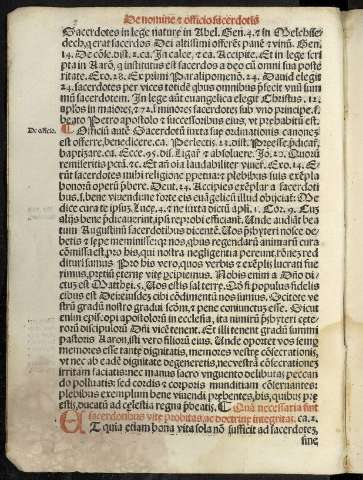 De nomine & officio sacerdotis
Sacerdotes in lege nature in Abel. Gen.4. & in Melchise
dech, q erat sacerdos Dei altissimi offerēs panē & vinū. Gen.
14. De cōse. dist.2. ca. In calce, & ca. Accipite. Et in lege scri
pta in Aarō, q institutus est sacerdos a deo cū omni sua poste
ritate. Exo.28. Et primi Paralipomenō.24. Dauid elegit
24. sacerdotes per vices totidē qbus omnibus pfecit vnū sum
mū sacerdotem. In lege aūt euangelica elegit Christus.12.
aplos in maiores, & 72. minores sacerdotes sub vno principe, s.
beato Petro apostolo & successoribus eius, vt prehabitū est.
De officio.
Officiū autē Sacerdotū iuxta sue ordinationis canonez
est offerre, benedicere. ca. Perlectis.25. dist. Preesse, pdicare,
baptizare. ca. Ecce. 95. dis. Ligare & absoluere. Jo.20. Quorū
remiseritis pccā. &c. Et aīs oīa laudabiliter viuere. Exo.14. E
rūt sacerdotes mihi religione ppetua: & plebibus suis exēpla
bonorū operū pbere. Deut.24. Accipies exēplar a sacerdoti
bus, s. bene viuendi ne forte eis euāgelicū illud obijceat: Me
dice cura te ipsū. Luc.4. & ne iuxta dictū apli. 1. Cor.9. Cuz
alijs bene pdicauerint, ipsi reprobi efficiant. Unde audiāt bea
tum Augustinū sacerdotibus dicentē. Uos pbyteri nosce de
betis & sepe meminisse: q nos, qbus regendarū animarū cura
cōmissa est, pro his, qui nostra negligentia pereunt, rōnez red
dituri sumus. Pro his vero, quos verbis & exēplis lucrati fue
rimus, pretiū eterne vite pcipiemus. Nobis enim a Dño di
ctus est Matthei.5. Uos estis sal terre. Qd si populus fideli
cibus est Dei, eiusdez cibi cōdimentū nos sumus. Scitote ve
strū gradū nostro gradui scdm, & pene coniunctus esse. Sicut
enim epi scopi apostolorū in ecclesia, ita nimirū pbyteri cete
rorū discipulorū Dñi vicē tenent. Et illi tenent gradū summi
pastoris Aaron, isti vero filiorū eius. Unde oportet vos semp
memores esse tante dignitatis, memores vestre cōsecrationis,
vt nec ab eadē dignitate degeneretis, nec vestrā cōsecrationez
irritam faciatis: ne manus sacro vnguento delibutas peccan
do polluatis: sed cordis & corporis munditiam cōseruantes:
plebibus exemplum bene viuendi prebentes, his, quibus pre
estis, ducatū ad celestia regna pbeatis. Que necessaria sint
sacerdotibus vite probitas, ac doctrine integritas. ca.2.
ET quia etiam bona vita sola nō sufficit ad sacerdotez,
sine